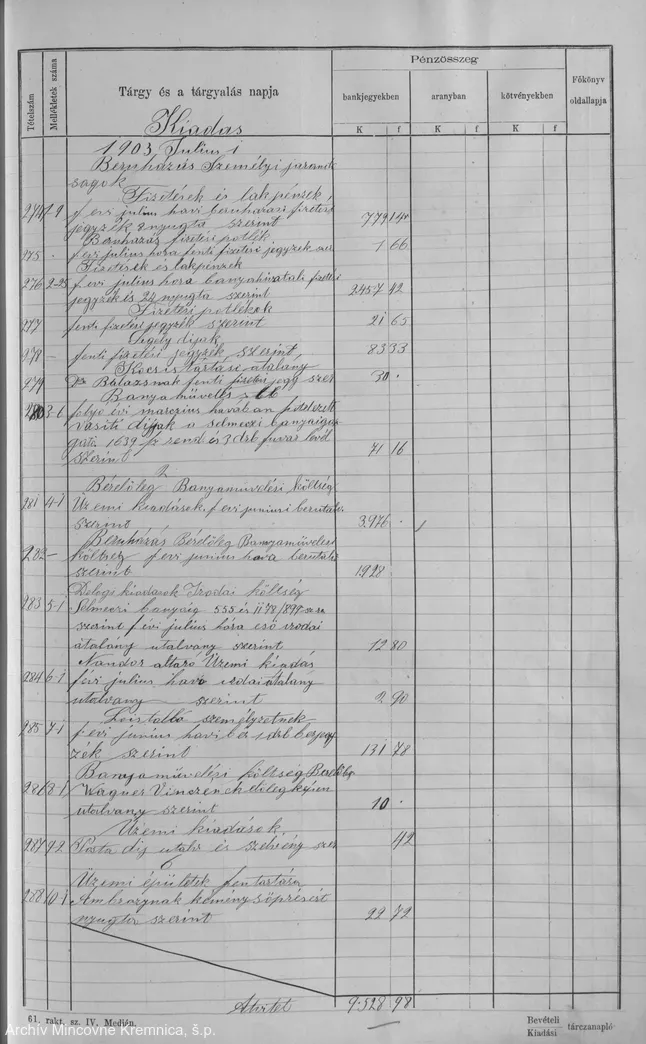 Tételszám
Mellékletek száma
Tárgy és a tárgyalás napja
Pénzösszeg
Főkönyv oldallapja
bankjegyekben
aranyban
kötvényekben
K f K f K f
Kiadás
1903 Julius 1
Beruházás Személyi járandó
ságok
Fizetések és lakpénzek,
f. évi július havi beruházási fizetési
jegyzék nyugta szerint 779 14
Beruházás fizetési pótlék
275 - f. évi július hóra fenti fizetési jegyzék szer 1 66
Fizetések és lakpénzek
276 2-25 f. évi július hóra bányahivatali fizetési
jegyzék és 24 nyugta szerint 2457 42
Fizetési pótlékok
277 fenti fizetési jegyzék szerint 21 65
Segély díjak
278 - fenti fizetési jegyzék szerint, 83 33
Kocsis tartási átalány
279 Balázsnak fenti fizetési jegy szer 30 .
Bányaművelés
280 3-6 folyó évi márczius havában
Vasúti díjak a selmeczi bányaigaz
gató. 1639 sz rend és 3 drb fuvar levél
szerint 71 16
2
Bérelőleg Bányaművelési költség
281 4-1 Üzemi kiadások f. évi júniusi
szerint 3.976 .
Beruházás Bérelőleg Bányaművelési
282 - költség f. évi június hava
szerint 1928 .
Dologi kiadások Irodai költség
283 5-1 Selmeczi bányaig 555 és
szerint f. évi július hóra eső irodai
átalány utalvány szerint 12 80
Nándor altáró Üzemi kiadás
284 6-1 f. évi július havi irodai átalány
utalvány szerint 2 90
személyzetnek
285 7-1 f. évi június havi bér 1 drb bérjegy
zék szerint 131 78
Bányaművelési költség
286 8-1 Wagner Vincze
utalvány szerint 10 .
Üzemi kiadások
287 9-2 Posta díj utalv és szelvény szer 42
6
Üzemi épületek fentartása
288 10-1 Ambrozynak kémény söprésért
nyugta szerint 22 72
Átvitel 9.528 98
61. rakt. sz. IV. Medián.
Bevételi
Kiadási tárczanapló
Archív Mincovne Kremnica, š.p.